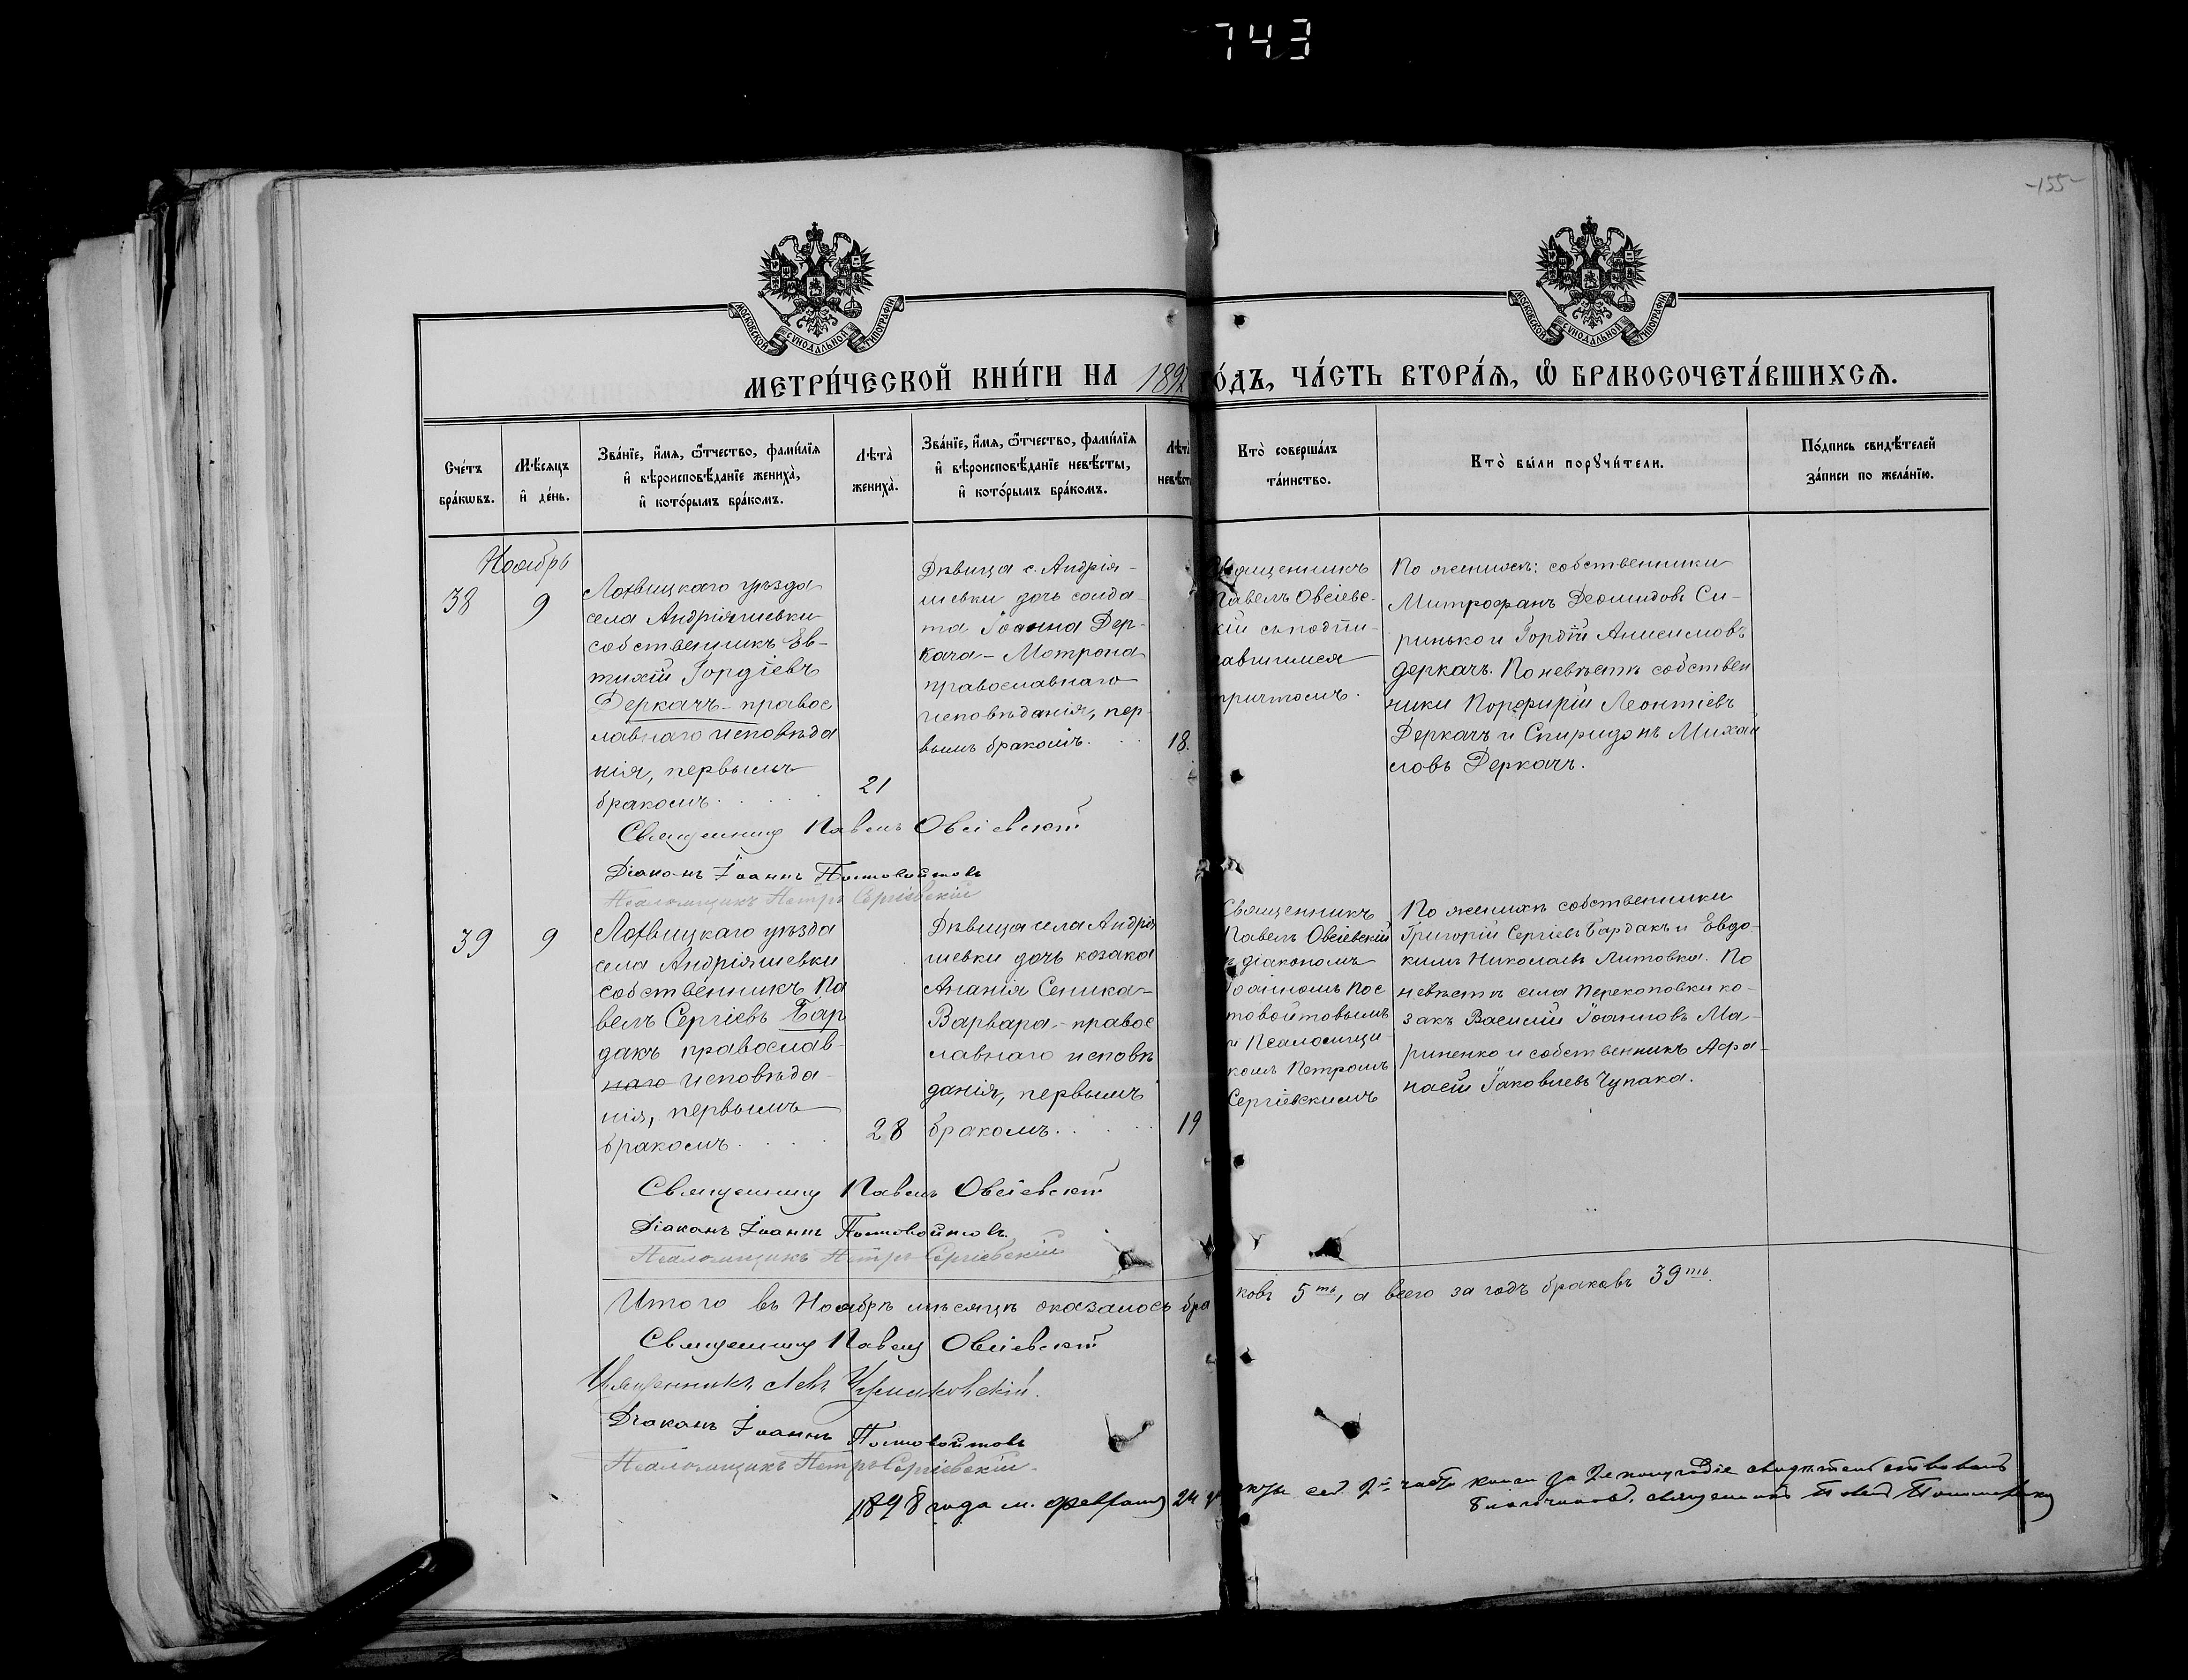 743
-155-
МОСКОВСКОЙ СУНОДАЛЬНОЙ ТИПОГРАФІИ
МОСКОВСКОЙ СУНОДАЛЬНОЙ ТИПОГРАФІИ
МЕТРИ́ЧЕСКОЙ КНИ́ГИ НА 189
О́ДЪ, ЧА́СТЬ ВТОРА́Ѧ, Ѽ БРАКОСОЧЕТА́ВШИХСѦ.
Сче́тъ
бра́кѡвъ.
Мѣ́сяцъ
и҆ де́нь.
Зва́нїе, и҆́мѧ, ѻ҆́тчество, фами́лїѧ
и҆ вѣроисповѣ́данїе жениха̀,
и҆ кото́рымъ бра́комъ.
Лѣ́та̀
жениха̀.
Зва́нїе, и҆́мѧ, ѻ҆́тчество, фами́лїѧ
и҆ вѣроисповѣ́данїе невѣ́сты,
и҆ кото́рымъ бра́комъ.
Лѣ́та̀
невѣ́ст
Кто̀ соверша́лъ
та́инство.
Кто̀ бы́ли порꙋчи́тели.
По́дпись свидѣ́телей
за́писи по жела́нїю.
Ноябрь
38
9
Лохвицкаго уѣзда
села Андріяшевки
собственникъ Ев-
тихій Гордіевъ
Деркачъ - правос
лавнаго исповѣда
нія, первымъ
бракомъ . . . .
21
Дѣвица с. Андрія-
шевки дочь солда-
та Іоанна Дер-
кача - Мотрона
православнаго
исповѣданія, пер
вымъ бракомъ. . .
18.
Священникъ
Павелъ Овсіевс-
кій съ подпи-
савшимся
причтомъ.
По женихѣ: собственники
Митрофанъ Деомидовъ Си-
ринько и Гордій Анисимовъ
деркачъ. По невѣстѣ собствен
ники Порфирій Леонтіевъ
Деркачъ и Спиридонъ Михай
ловъ Деркачъ.
Священникъ Павелъ Овсіевскій
Діаконъ Іоаннъ Постовойтовъ
Псаломщикъ Петръ Сергіевскій
39
9
Лохвицкаго уѣзда
села Андріяшевки
собственникъ Па
велъ Сергіевъ Бар
дакъ православ-
наго исповѣда-
нія, первымъ
бракомъ . . . .
28
Дѣвица села Андрія
шевки дочь козака
Ананія Сеника -
Варвара - правос
лавнаго исповѣ
данія, первымъ
бракомъ. . . .
19
Священникъ
Павелъ Овсіевскій
съ діакономъ
Іоанномъ Пос
товойтовымъ
и Псаломщи-
комъ Петромъ
Сергіевскимъ
По женихѣ собственники
Григорій Сергіевъ Бардакъ и Евдо-
кимъ Николаевъ Литовка. По
невѣстѣ села Перекоповки ко-
закъ Василій Іоанновъ Ма-
риненко и собственникъ Афа-
насій Іаковлевъ Чупака.
Священникъ Павелъ Овсіевскій
Діаконъ Іоаннъ Постовойтовъ.
Псаломщикъ Петръ Сергіевскій
Итого въ Ноябрѣ мѣсяцѣ оказалось бра
ковъ 5ть, а всего за годъ браковъ 39ть.
Священникъ Павелъ Овсіевскій
Священникъ Левъ
Діаконъ Іоаннъ Постовойтовъ
Псаломщикъ Петръ Сергіевскій.
1898 года м. февраля 24 д
сей 2й части книги за 2е полугодіе свидѣтельствовалъ
благочинный, священникъ